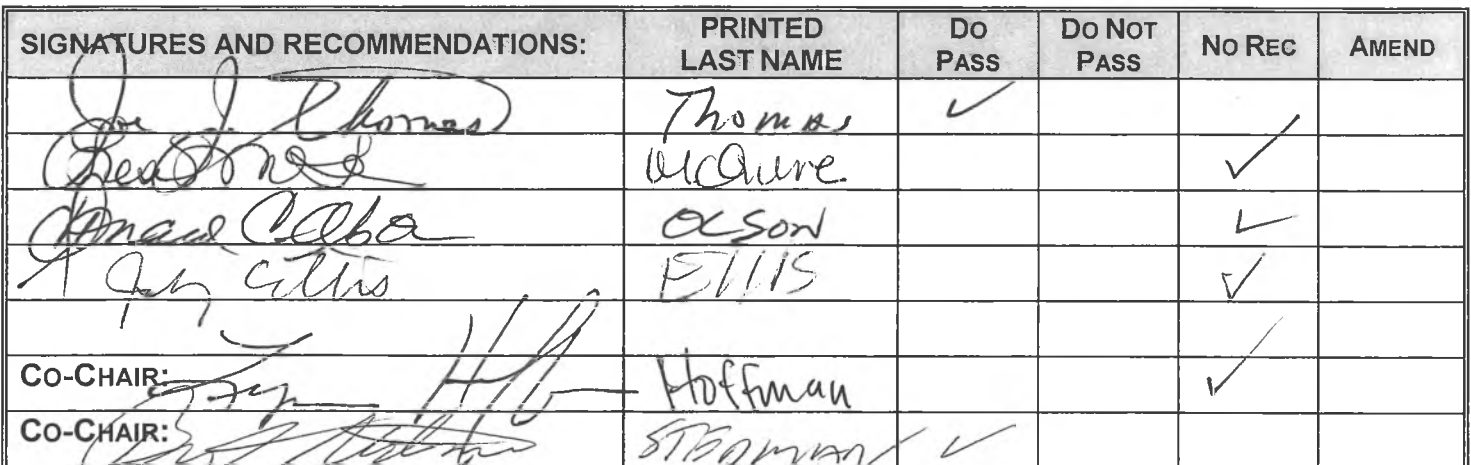 SIGNATURES AND RECOMMENDATIONS: PRINTED LAST NAME DO PASS DO NOT PASS NO REC AMEND
Joe J. Thomas Thomas ✓
McGuire ✓
Olson ✓
Ellis ELLIS ✓
CO-CHAIR: Hoffman ✓
CO-CHAIR: STEDMAN ✓